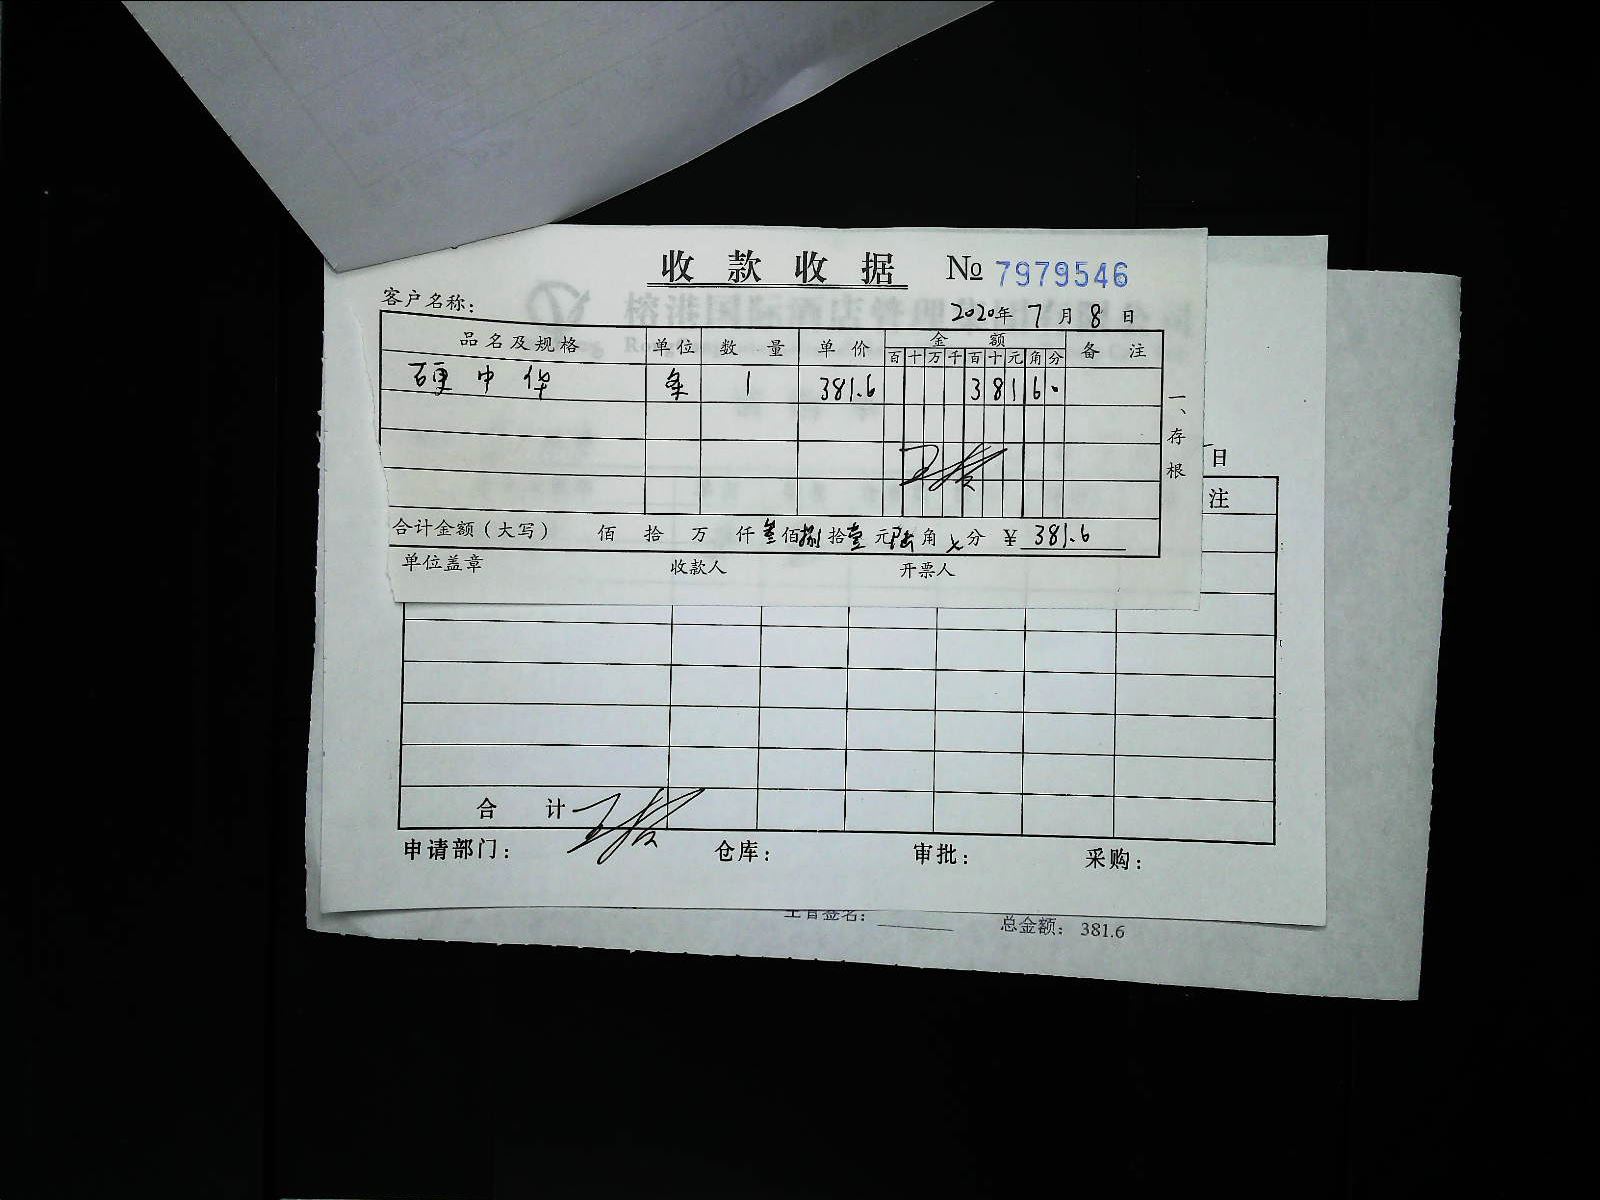 收款收据 № 7979546
客户名称:
2020年 7月 8日
品名及规格 单位 数量 单价 金额 备注
百 十 万 千 百 十 元 角 分
硬中华 条 1 381.6 3 8 1 6 0
一、存根
合计金额(大写) 佰 拾 万 仟 叁佰 捌拾 壹元 陆角 分 ¥ 381.6
单位盖章 收款人 开票人
日
注
合计
申请部门: 仓库: 审批: 采购:
主管签名: 总金额: 381.6